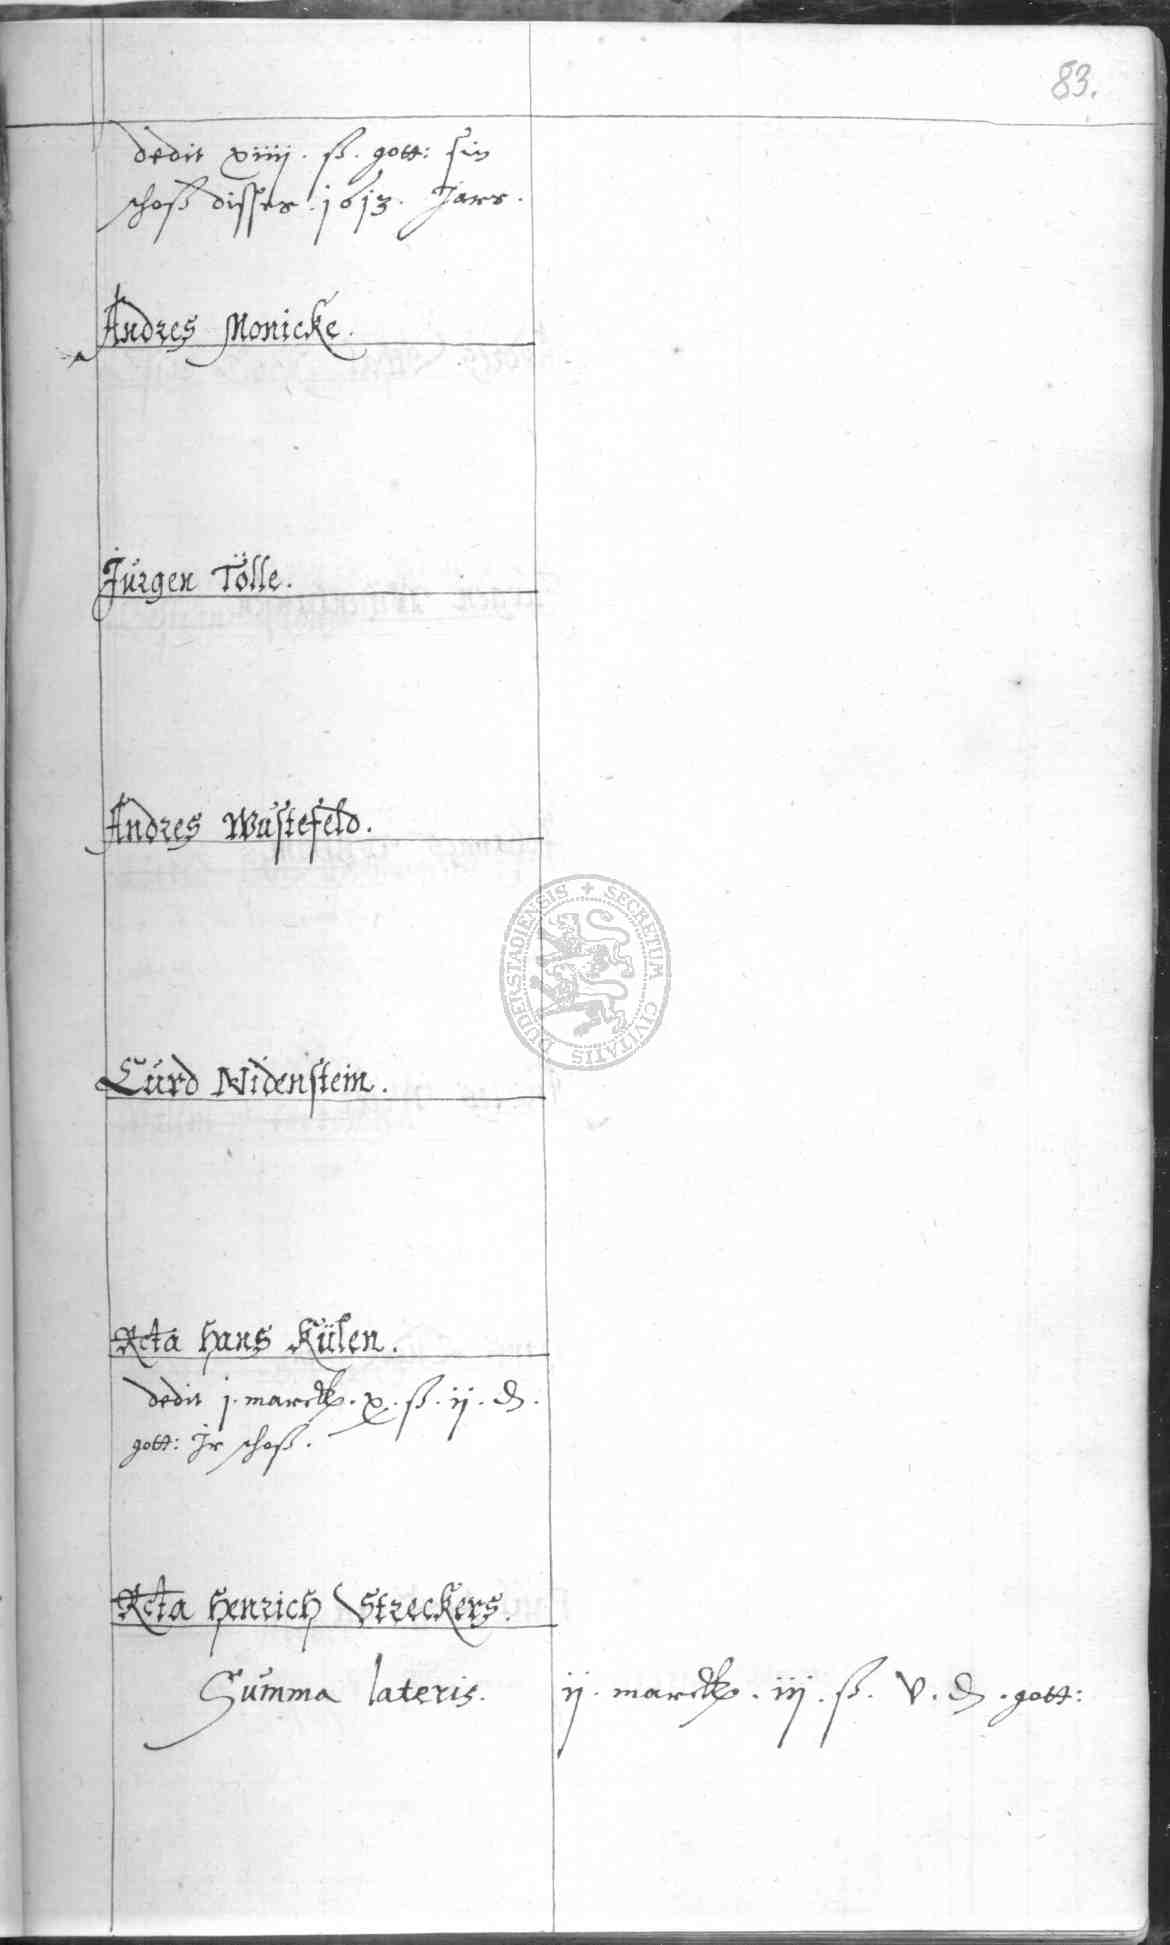 83.
dedit xiiij. ß. gott: sin
schoß disses .1613. Jars.
Andres Monicke.
Jürgen Tölle.
Andres Wüstefeld.
Curd Nidenstein.
Rcta Hans Külen.
dedit j. marck. x. ß. ij. d.
gott: Jr schoß.
Rcta Henrich Streckers.
Summa lateris. ij. marck. iij. ß. v. d. gott:
SECRETUM CIVITATIS DUDERSTADIENSIS